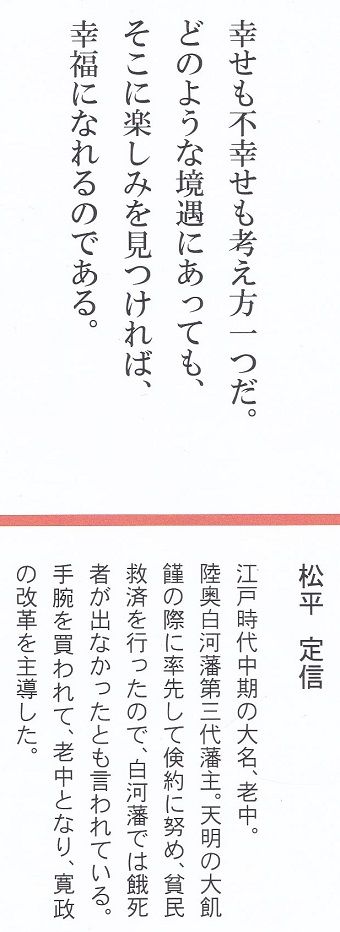 幸せも不幸せも考え方一つだ。
どのような境遇にあっても、
そこに楽しみを見つければ、
幸福になれるのである。
松平 定信
江戸時代中期の大名、老中。
陸奥白河藩第三代藩主。天明の大飢
饉の際に率先して倹約に努め、貧民
救済を行ったので、白河藩では餓死
者が出なかったとも言われている。
手腕を買われて、老中となり、寛政
の改革を主導した。